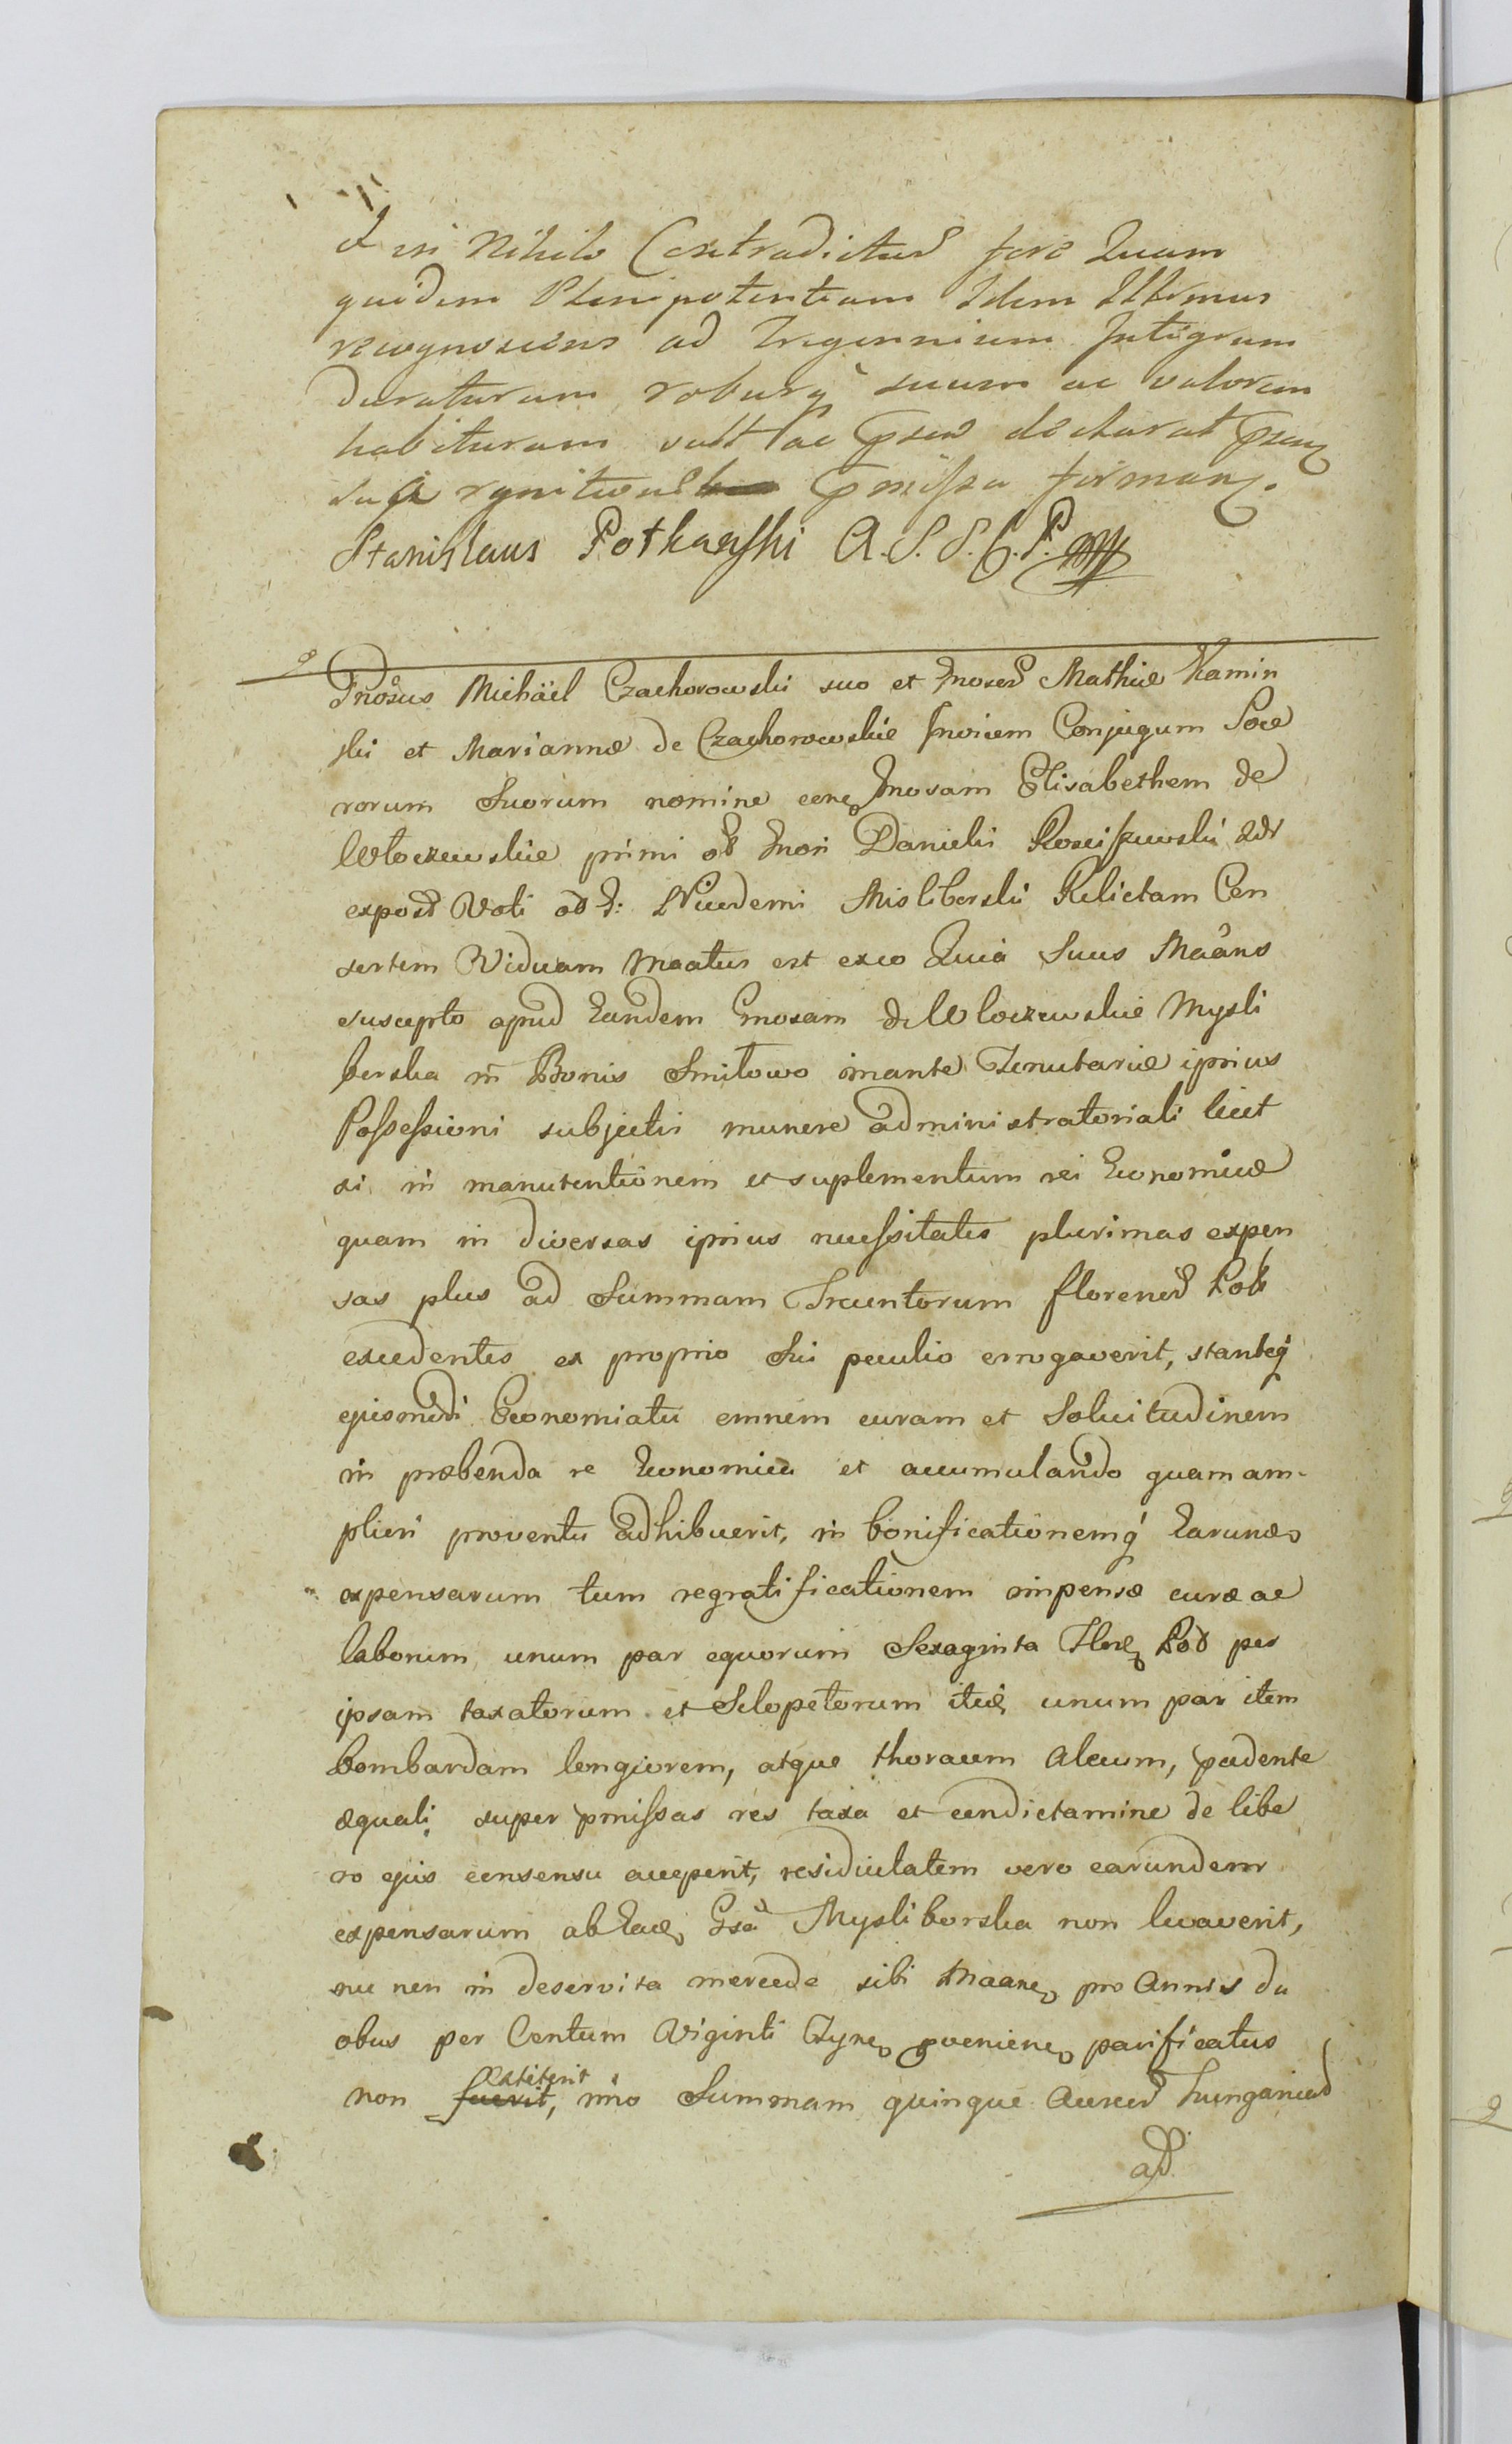 in Nihilo Contradictur fore Quam
quidem Plenipotentiam Idem Illrmus
recognoscens ad Trigennium Integrum
duraturam roburq suum ac valorem
habituram vult ac declarat
sua pmissa firman
Stanislaus Potkanski A. S. S. C. P. mpp
Gnosus Michäel Czachorowski suo et Gnoser Mathiæ Kamin
ski et Mariannæ de Czachorowskie Invicem Conjugum Soce
rorum Suorum nomine Gnosam Elisabethem de
Wloczewskie primi ol Gnosi Danielis Rosciszewski
expost Voti ol G: Nicodemi Misliborski Relictam Con
sortem Viduam Maatus est exeo Quia Suus Maans
suscepto apud Eandem Gnosam de Wloczewskie Mysli
borska in Bonis Smiłowo imante Tenutariæ ipsius
Possessioni subjectis munere administratoriali licet
si in manutentionem et suplementum rei Economicæ
quam in diversas ipsius necessitates plurimas expen
sas plus ad Summam Trecentorum florenor Pol
excedentes ex proprio Sui peculio errogaverit, stanteq
ejusmodi Economiatu omnem curam et Solicitudinem
in præbenda re Economica et accumulando quam am-
pliori proventu adhibuerit, in bonificationemq Earund
expensarum tum regratificationem impensæ curæ ac
laborum unum par equorum Sexaginta Flor Pol per
ipsam taxatorum et Sclopetorum unum par item
bombardam longiorem, atque thoracem Alcum, cedente
æquali super pmissas res taxa et condictamine de libe
ro ejus consensu acceperit, residuitatem vero earundem
expensarum ab Ead Gsa Mysliborska non levaverit,
nec non in deservita mercede sibi Maan pro Annis du
obus per Centum Viginti Tynf pvenien parificatus
non fuerit extiterit, imo Summam quinque Aureor Hungarical
ad